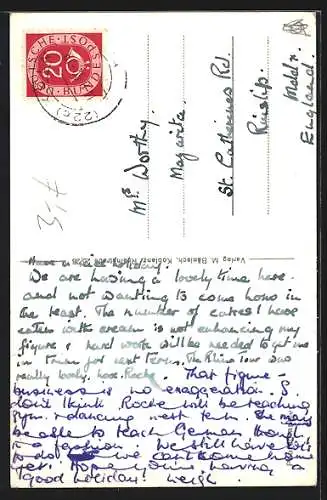 DEUTSCHE BUNDESPOST
20
(22c)
Mrs Worthy.
Magarita.
St. Catherines Rd.
Ruislip.
Middx.
England.
Verlag M. Bänisch, Koblenz
Have a nice holiday.
We are having a lovely time here
and not wanting to come home in
the least. The number of cakes I have
eaten with cream is not enhancing my
figure & hard work will be needed to get me
in trim for next term. The Rhine Tour was
really lovely. love. Roche
That figure
business is no exaggeration. I
don't think Roche will be teaching
gym. & dancing next term. She may
be able to teach German though
in a fashion. We still have lots
to do! We can't come home
yet. Hope you're having a
good holiday!